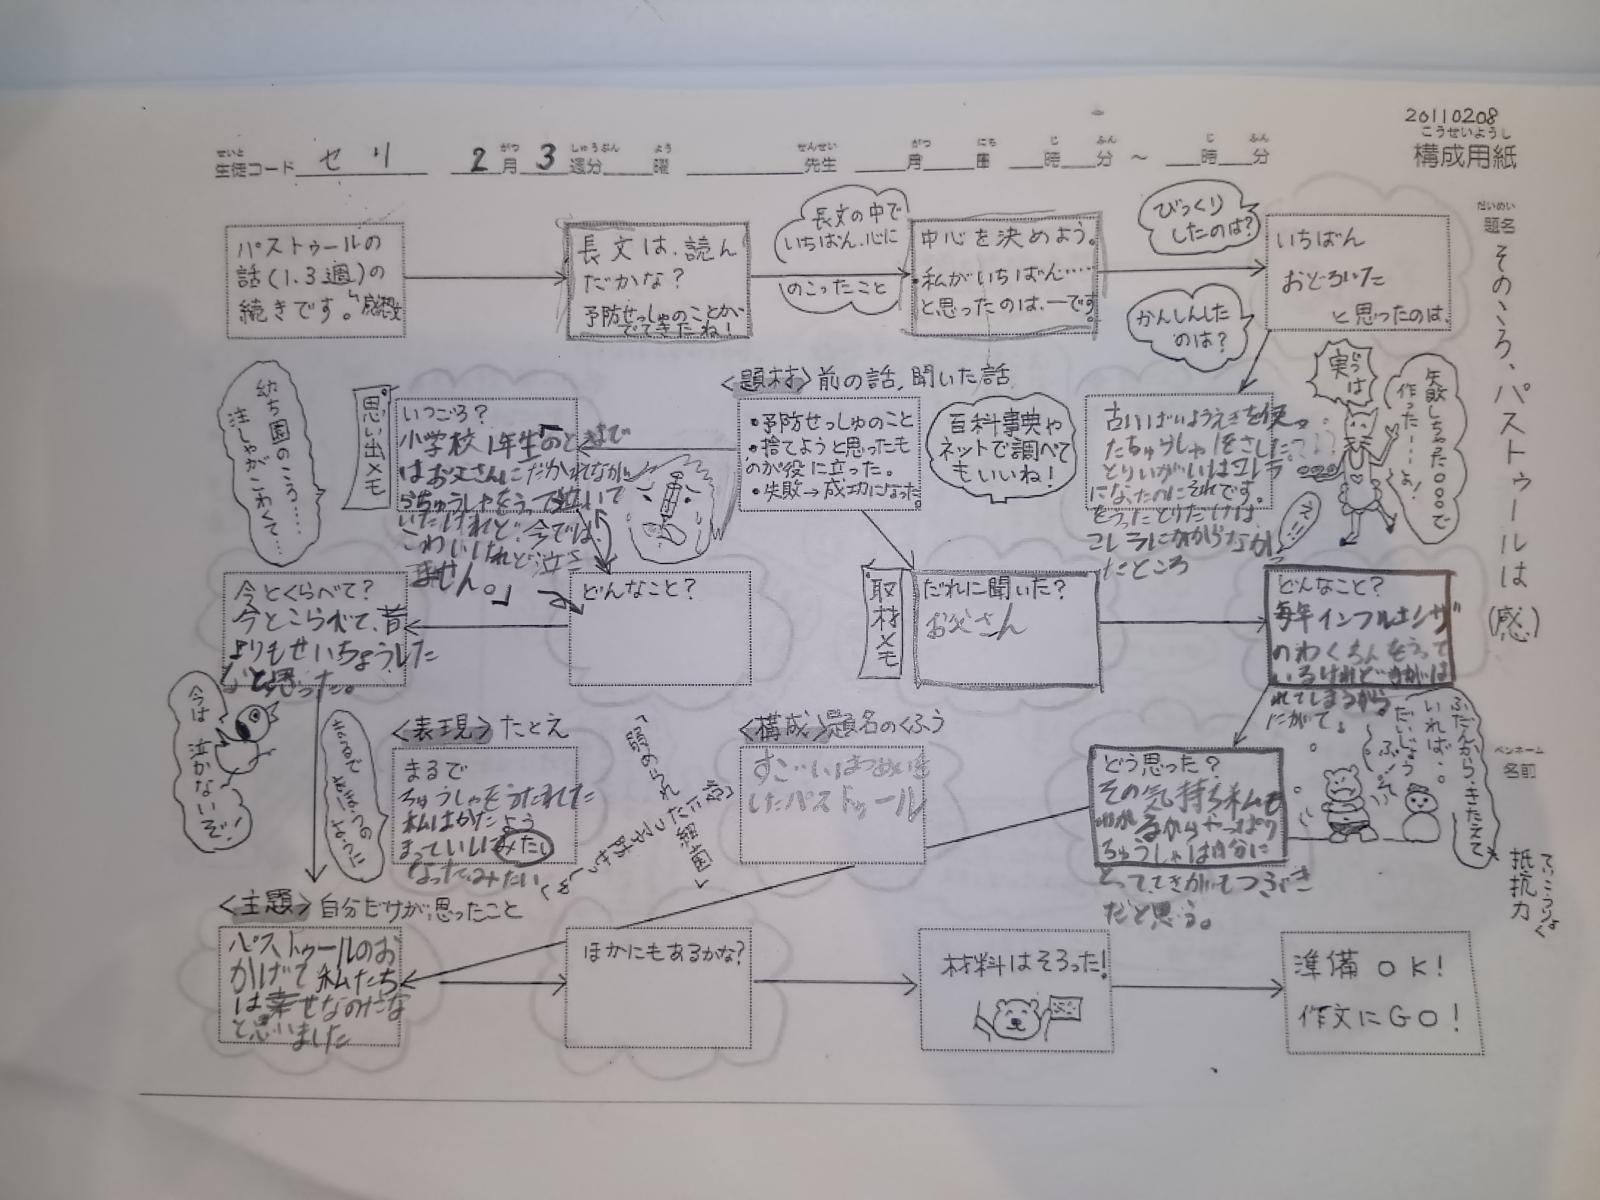 20110208
こうせいようし
構成用紙
せいと
生徒コード セリ
がつ しゅうぶん よう
2月3週分 曜
せんせい
先生
がつ にち じ ふん じ ふん
月 日 時 分 ～ 時 分
だいめい
題名
その、ろ、パストゥールは(感)
パストゥールの
話(1.3週)の
続きです。
感想文
長文は、読ん
だかな?
予防せっしゅのことが
でてきたね!
長文の中で
いちばん、心に
のこったこと
中心を決めよう。
・私がいちばん……
と思ったのは、ーです。
びっくり
したのは?
かんしんした
のは?
いちばん
おどろいた
と思ったのは、
じつ
実は
失敗しちゃった○○○で
作った……よ!
えー!
古いばいようえきを使っ
たちゅうしゃをさした
とりいがいはコレラ
になったのにそれです。
をうったとりだけは
コレラにかからなか
ったところ
<題材>前の話,聞いた話
・予防せっしゅのこと
・捨てようと思ったも
のが役に立った。
・失敗→成功になった。
百科事典や
ネットで調べて
もいいね!
思い出メモ
いつごろ?
小学校1年生のときまで
はお父さんにだかれなが
らちゅうしゃをうって泣いて
いたけれど、今では、
こわいけれど泣き
ません。」
幼ち園のころ……
注しゃがこわくて…
どんなこと?
今とくらべて?
今とこらべて、昔
よりもせいちょうした
なと思った。
今は
泣かないぞ!
取材メモ
だれに聞いた?
お父さん
どんなこと?
毎年インフルエンザ
のわくちんをうって
いるけれどうでがは
れてしまうから
にがて。
ふだんから、きたえて
いれば、。
だいじょう
ぶ!
どう思った?
その気持ち私も
わかるからやっぱり
ちゅうしゃは自分に
とって
だと思う。
ペンネーム
名前
ていこうりょく
抵抗力
<表現>たとえ
まるで
ちゅうしゃをうたれた
私はかたよう
まっていしにみたい
なってみたい
<構成>題名のくふう
すごいはつめいを
したパストゥール
<主題>自分だけが思ったこと
パストゥールのお
かげで私たち
は幸せなのだな
と思いました
ほかにもあるかな?
材料はそろった!
準備OK!
作文にGO!